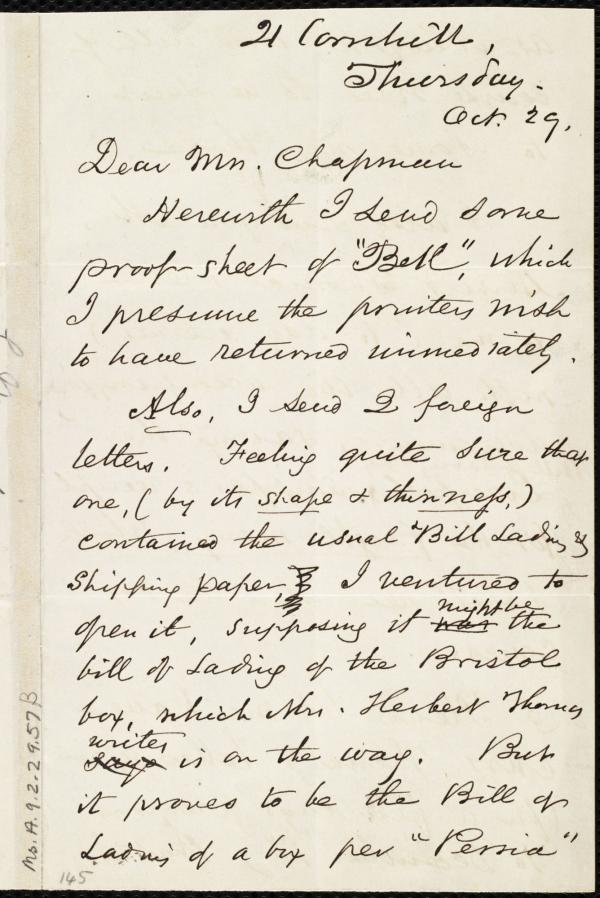 21 Cornhill,
Thursday.
Oct. 29.
Dear Mrs. Chapman
Herewith I send some
proof-sheet of "Bell", which
I presume the printers wish
to have returned immediately.
Also, I send 2 foreign
letters. Feeling quite sure that
one, (by its shape & thinness,)
contained the usual "Bill Lading &
shipping paper, I ventured to
open it, supposing it was might be the
bill of Lading of the Bristol
box, which Mrs. Herbert Thomas
says writes is on the way. But
it proves to be the Bill of
Lading of a box per "Persia"
Ms. A.9.2.29.57B
145